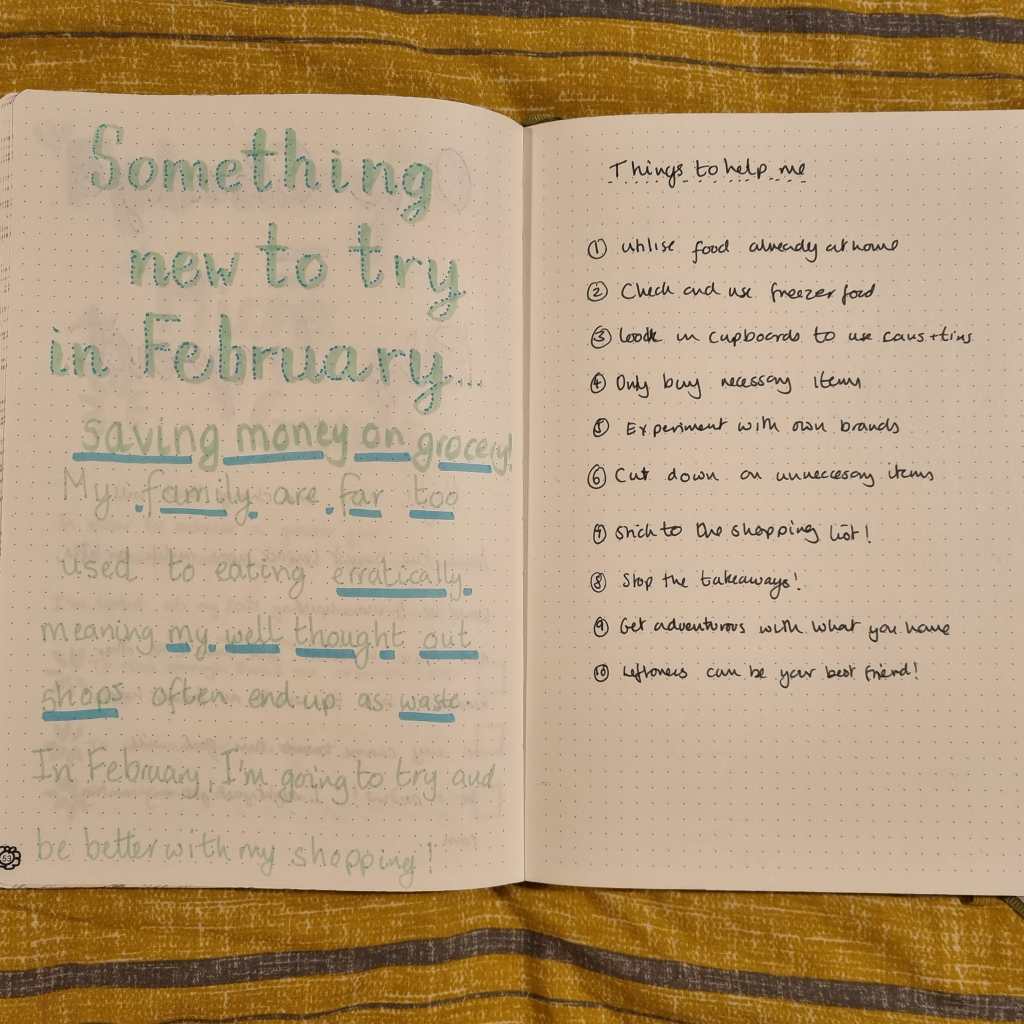 Something
new to try
in February...
saving money on grocery!
My family are far too
used to eating erratically,
meaning my well thought out
shops often end up as waste.
In February, I'm going to try and
be better with my shopping!
Things to help me
① utilise food already at home
② Check and use freezer food
③ look in cupboards to use cans + tins
④ Only buy necessary items
⑤ Experiment with own brands
⑥ Cut down on unneccesary items
⑦ stick to the shopping list!
⑧ Stop the takeaways!
⑨ Get adventurous with what you have
⑩ leftovers can be your best friend!